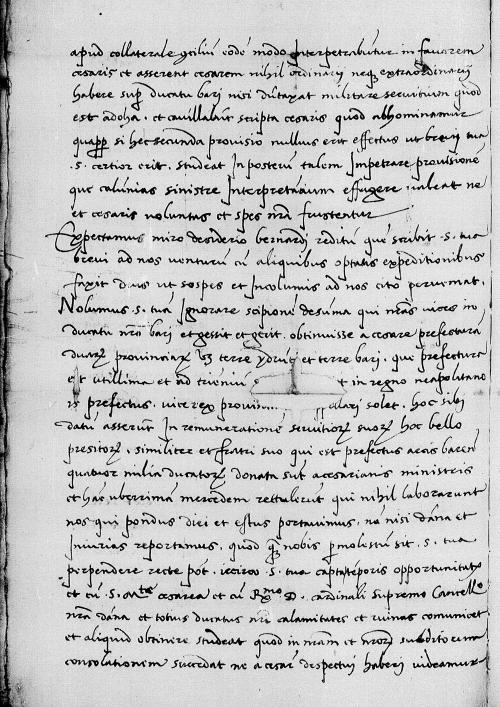 apud collaterale consiliu eode modo Interpetrabutur in favorem
cesaris et asserent cesarem nihil ordinarij neque extraordinarij
habere sup ducatu bari nisi dutaxat militare servitium quod
est adoha, et cavillabut scripta cesaris quod abhominamur
quapp si hec secunda provisio nullius erit effectus ut brevi tua
.S. certior erit, studeat In posteru talem Impetrare provisione
que calunias sinistre Interpretantium effugere valeat ne
et cesaris voluntas et spes nra frustentur
Expectamus miro desiderio bernardi reditu que scribit .S. tua
brevi ad nos venturu cu aliquibus optatis expeditionibus
faxit deus ut sospes et Incolumis ad nos cito perveniat.
Nolumus .S. tua Ignorare scipione desuma qui nras vices in
ducatu nro bari et gessit et gerit, obtinuisse a cesare prefectura
duarz provinciarz terre ydruti et terre bari, que prefectura
est utillima et ad trieniu t in regno neapolitano
is prefectus, vicerex provin... solet, hoc sibi
datu asserut In remuneratione servitiorz suorz hoc bello
presitorz, similiter et fratri suo qui est prefectus arcis baren
quatuor milia ducatorz donata sut a cesarianis ministris
et hac uberrima mercedem rettulerut qui nihil laborarunt
nos qui pondus diei et estus portavimus, na nisi dana et
Iniurias reportamus, quod q nobis pmolestu sit .S. tua
perpendere recte pot, iccirco .S. tua captata teporis opportunitate
et cu .S. Mte cesarea et cu Rmo D. cardinali supremo Cancello
nra dana et totius ducatus nri calamitates et ruinas comunicet
et aliquid obtinere studeat quod in nram et nrorz subditorum
consolationem succedat ne a cesare despectui haberi videamur